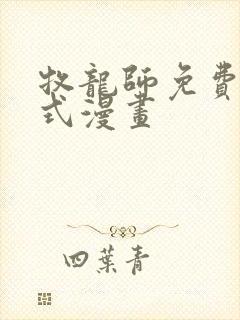 牧龍師免費
式漫畫
四葉青